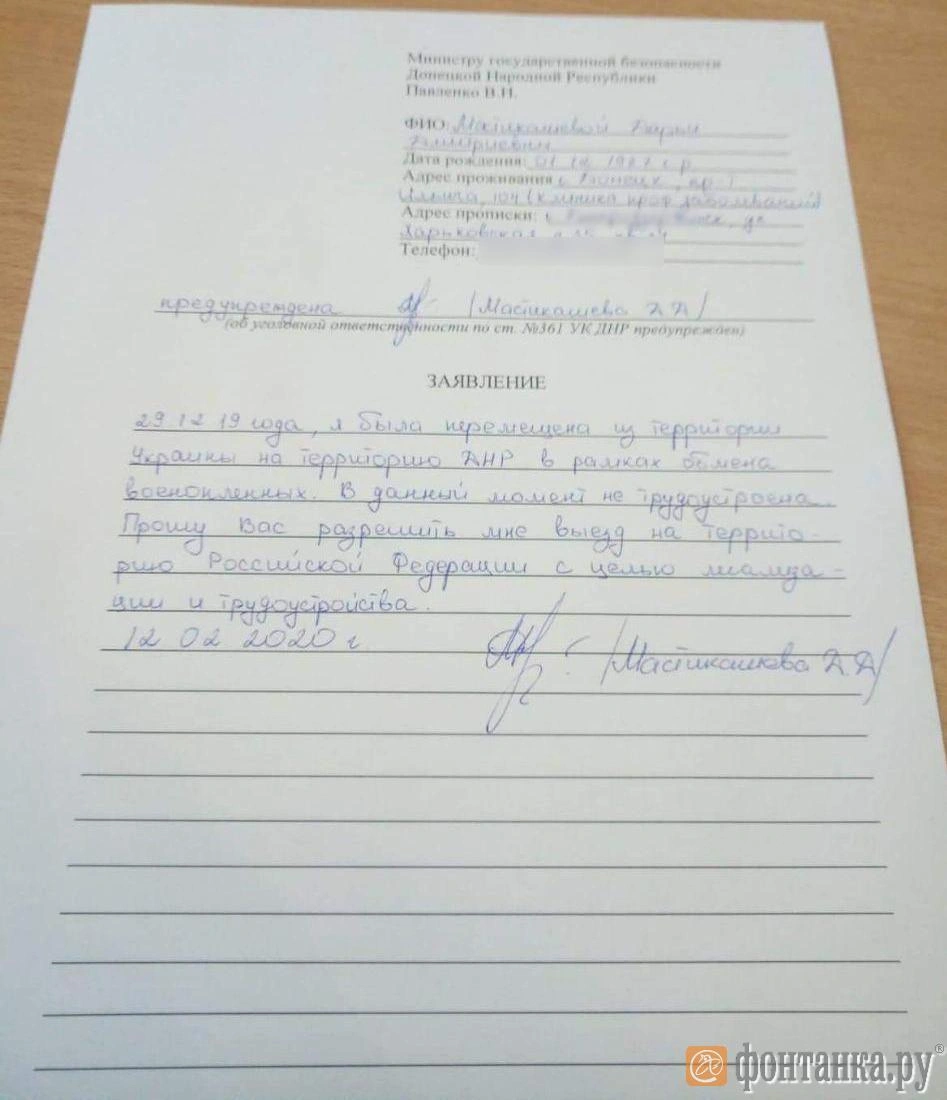 Министру государственной безопасности
Донецкой Народной Республики
Павленко В.Н.
ФИО: Мастикашевой Дарьи
Дмитриевны
Дата рождения: 1987 г.р
Адрес проживания г Донецк, пр-т
Ильича, 104 (клиника проф заболеваний)
Адрес прописки: г. ул
Харьковская
Телефон:
предупреждена /Мастикашева Д.Д/
(об уголовной ответственности по ст. №361 УК ДНР предупрежден)
ЗАЯВЛЕНИЕ
29 12 19 года, я была перемещена из территории
Украины на территорию ДНР в рамках обмена
военопленных. В данный момент не трудоустроена.
Прошу Вас разрешить мне выезд на террито-
рию Российской Федерации с целью
ции и трудоустройства.
12 02 2020 г. /Мастикашева Д.Д/
фонтанка.ру®